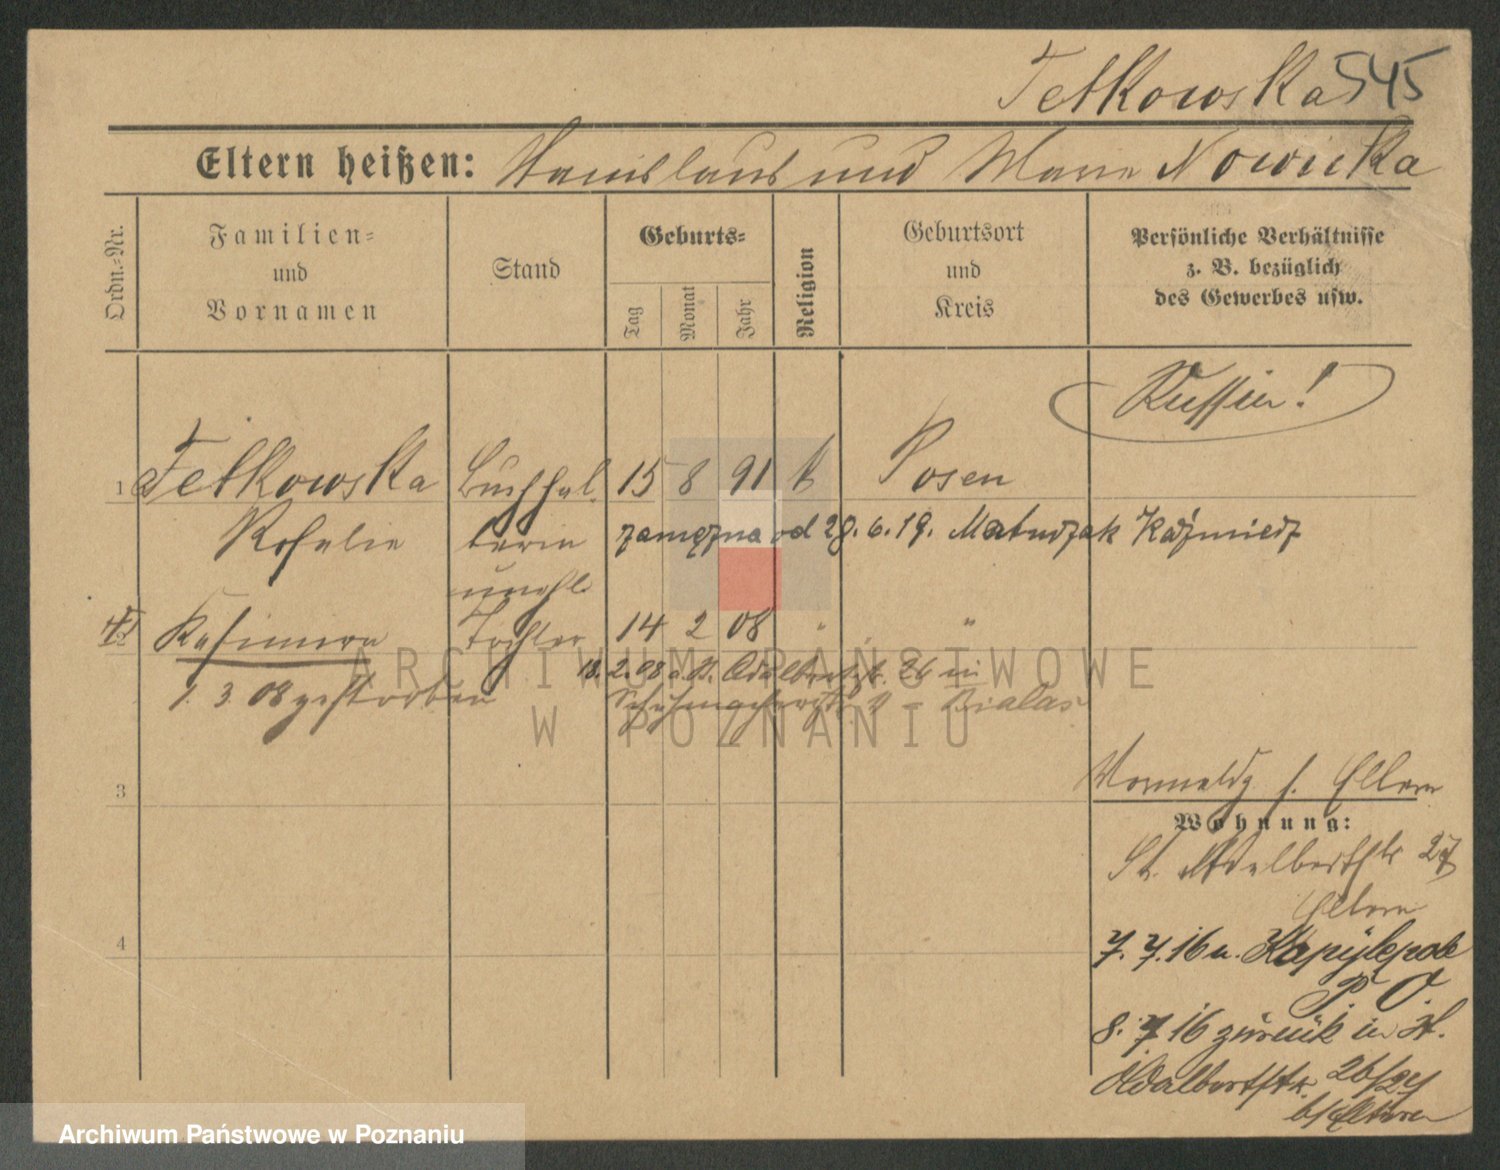 Tetkowska 545
Eltern heißen: Stanislaus und Marie Nowicka
Ordn.-Nr.
Familien-
und
Vornamen
Stand
Geburts-
Tag
Monat
Jahr
Religion
Geburtsort
und
Kreis
Persönliche Verhältnisse
z. B. bezüglich
des Gewerbes usw.
Russin!
1 Tetkowska Buchhal- 15 8 91 k Posen
Rosalie terin zamężna od 28.6.19. Matuszak Kaźmierz
unehl.
Kasimira Tochter 14 2 08 " "
1. 3. 08 gestorben
18. 2. 08 Adalbertstr. 26 in
Bialas
3
Eltern
Wohnung:
St. Adalbertstr 27
Eltern
4
7. 7. 16 n.
P. O.
8. 7 16 zurück in St.
Adalbertstr. 26/27
b/Eltern
ARCHIWUM PAŃSTWOWE
W POZNANIU
Archiwum Państwowe w Poznaniu